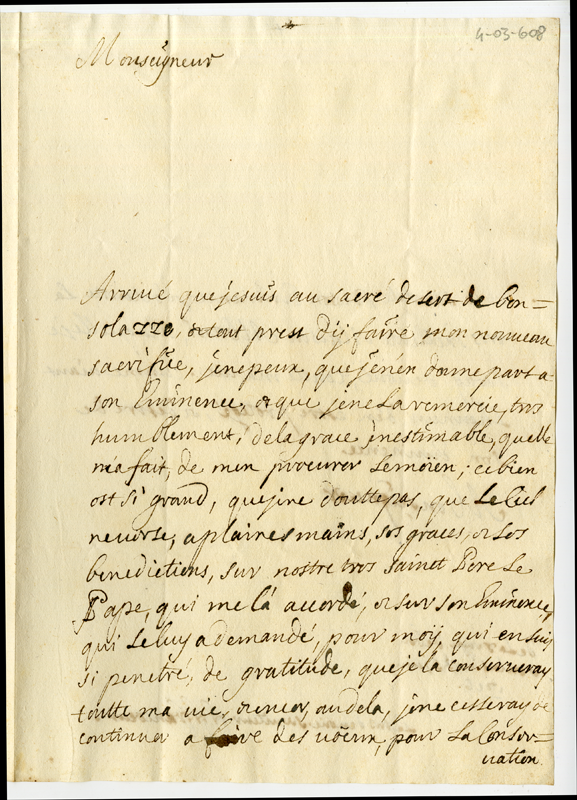 4-03-608
Monseigneur
Arrivé que je suis au sacré desert de bon=
solazze, et tout prest d'ÿ faire mon nouveau
sacrifice, je ne peux, que je n'en donne part a
son Eminence, et que je ne La remercie, tres
humblement, de la grace inestimable, qu'elle
m'a fait, de m'en procurer Le moïen; ce bien
est si grand, que je ne doutte pas, que Le Ciel
ne verse, a plaines mains, ses graces, et ses
benedictions, sur nostre tres sainct Pere Le
Pape, qui me l'a accordé, et sur son Eminence,
qui Le luy a demandé, pour moÿ, qui en suis
si penetré, de gratitude, que je la conserveray
toutte ma vie, et encor, au dela, je ne cesseray de
continuer a faire des vœux, pour La Conser=
vation